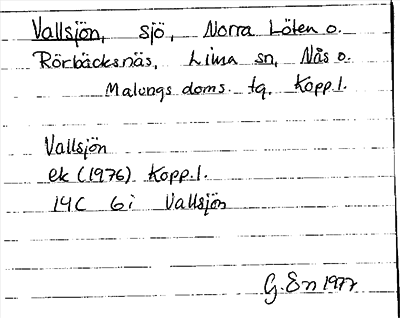 Vallsjön, sjö, Norra Löten o.
Rörbäcksnäs, Lima sn, Nås o.
Malungs doms. tg. Kopp.l.
Vallsjön
ek (1976) Kopp.l.
14C 6i Vallsjön
G.En 1977